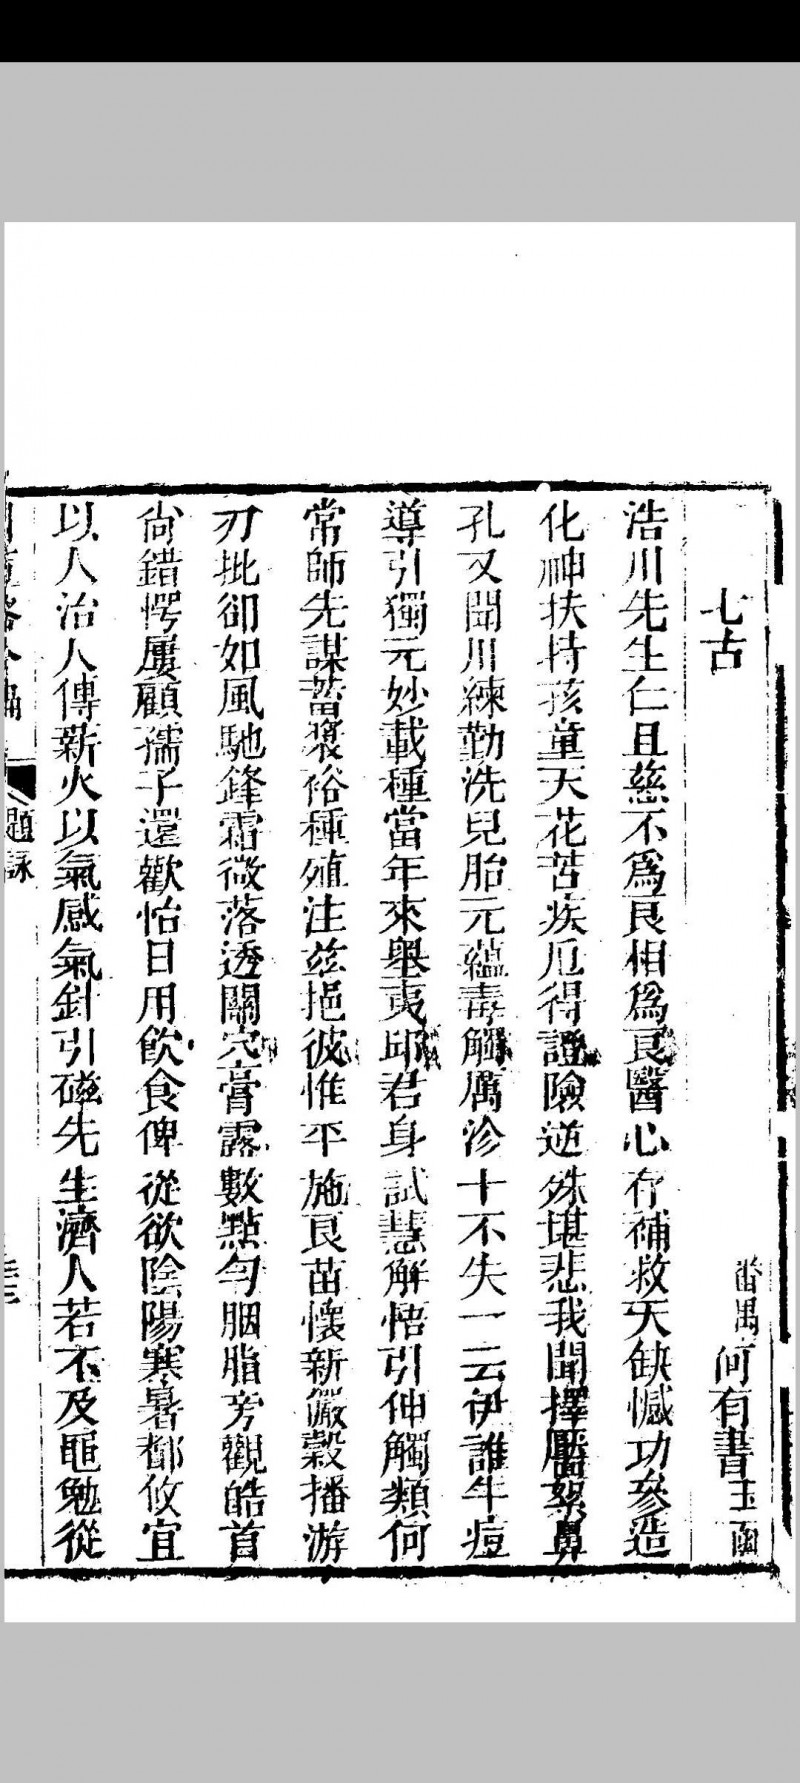 七古
番禺何有書玉函
浩川先生仁且慈不爲良相爲良醫心存補救天缺憾功參造
化神扶持孩童天花苦疾厄得證險逆殊堪悲我聞擇醫絮鼻
孔又聞川練勤洗兒胎元蘊毒觸厲沴十不失一云伊誰牛痘
導引獨元妙載種當年來舉夷邱君身試慧解悟引伸觸類何
常師先謀蓄漿裕種殖注茲挹彼惟平施良苗懷新儼穀播游
刃批卻如風馳鋒霜微落透關穴膏露數點勻胭脂旁觀皓首
尙錯愕屢顧孺子還歡怡日用飮食俾從欲陰陽寒暑都攸宜
以人治人傳薪火以氣感氣針引磁先生濟人若不及黽勉從
題詠